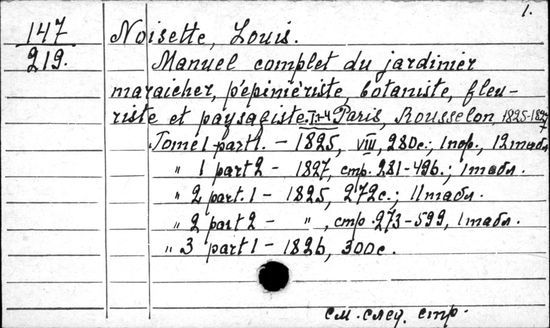 1.
147 Noisette, Louis.
219. Manuel complet du jardinier
maraicher, pépiniériste, botaniste, fleu-
riste et paysagiste. T.1-4 Paris, Rousselon 1825-1827
Tome 1 part 1. – 1825, VIII, 280c.; 1 пор., 12 табл.
" 1 part 2 – 1827, стр. 281-496.; 1 табл.
" 2 part. 1 – 1825, 272c.; 11 табл.
" 2 part 2 – " , стр. 273-599, 1 табл.
" 3 part 1 – 1826, 300c.
см. след. стр.